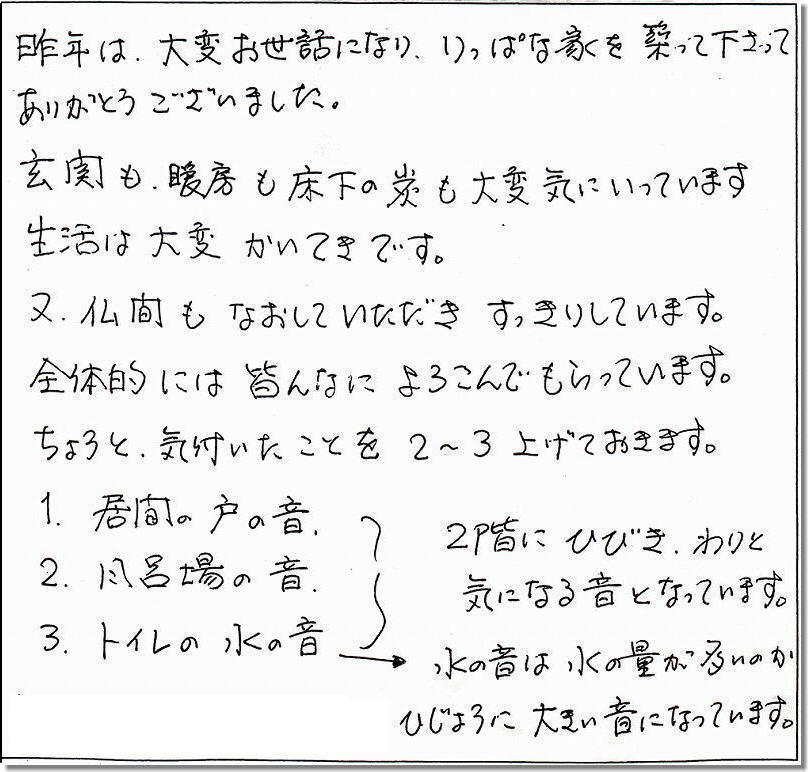 昨年は、大変お世話になり、りっぱな家を築って下さって
ありがとうございました。
玄関も、暖房も床下の炭も大変気にいっています
生活は大変かいてきです。
又、仏間もなおしていただきすっきりしています。
全体的には皆んなによろこんでもらっています。
ちょうと、気付いたことを2～3上げておきます。
1. 居間の戸の音、
2. 風呂場の音、
3. トイレの水の音
2階にひびき、わりと
気になる音となっています。
→ 水の音は水の量が多いのか
ひじょうに大きい音になっています。